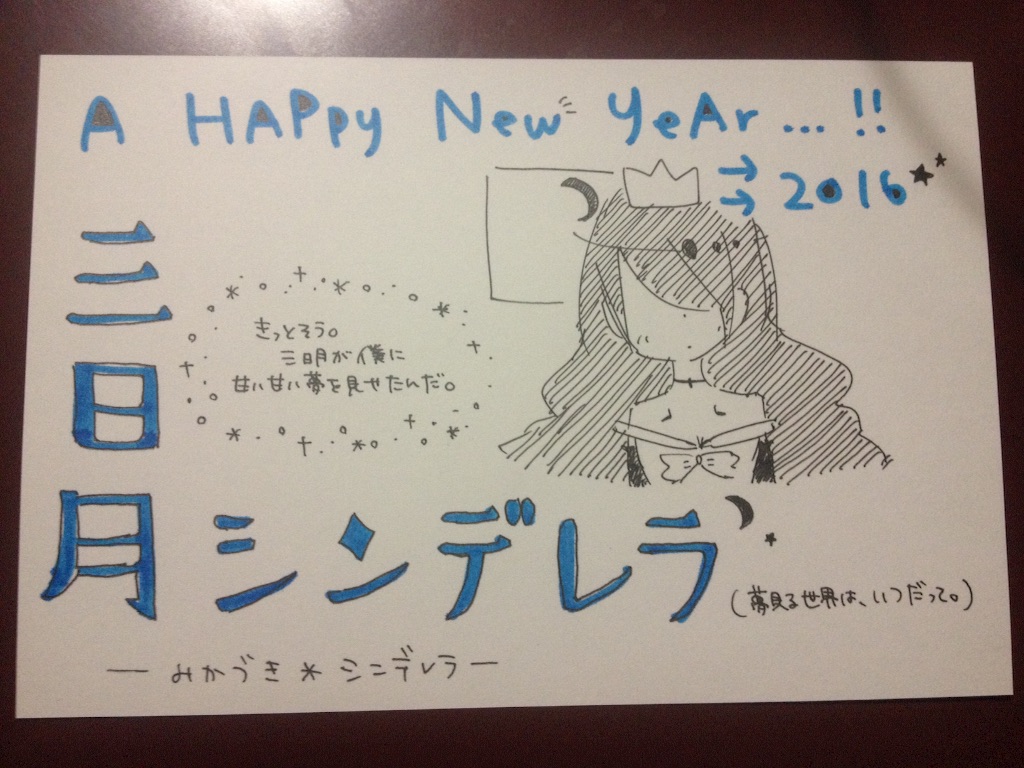 A HAPpy New YeAr...!!
→→2016
三日月シンデレラ
きっとそう。
三日月が僕に
甘い甘い夢を見せたんだ。
(夢見る世界は、いつだって。)
— みかづき * シンデレラ —